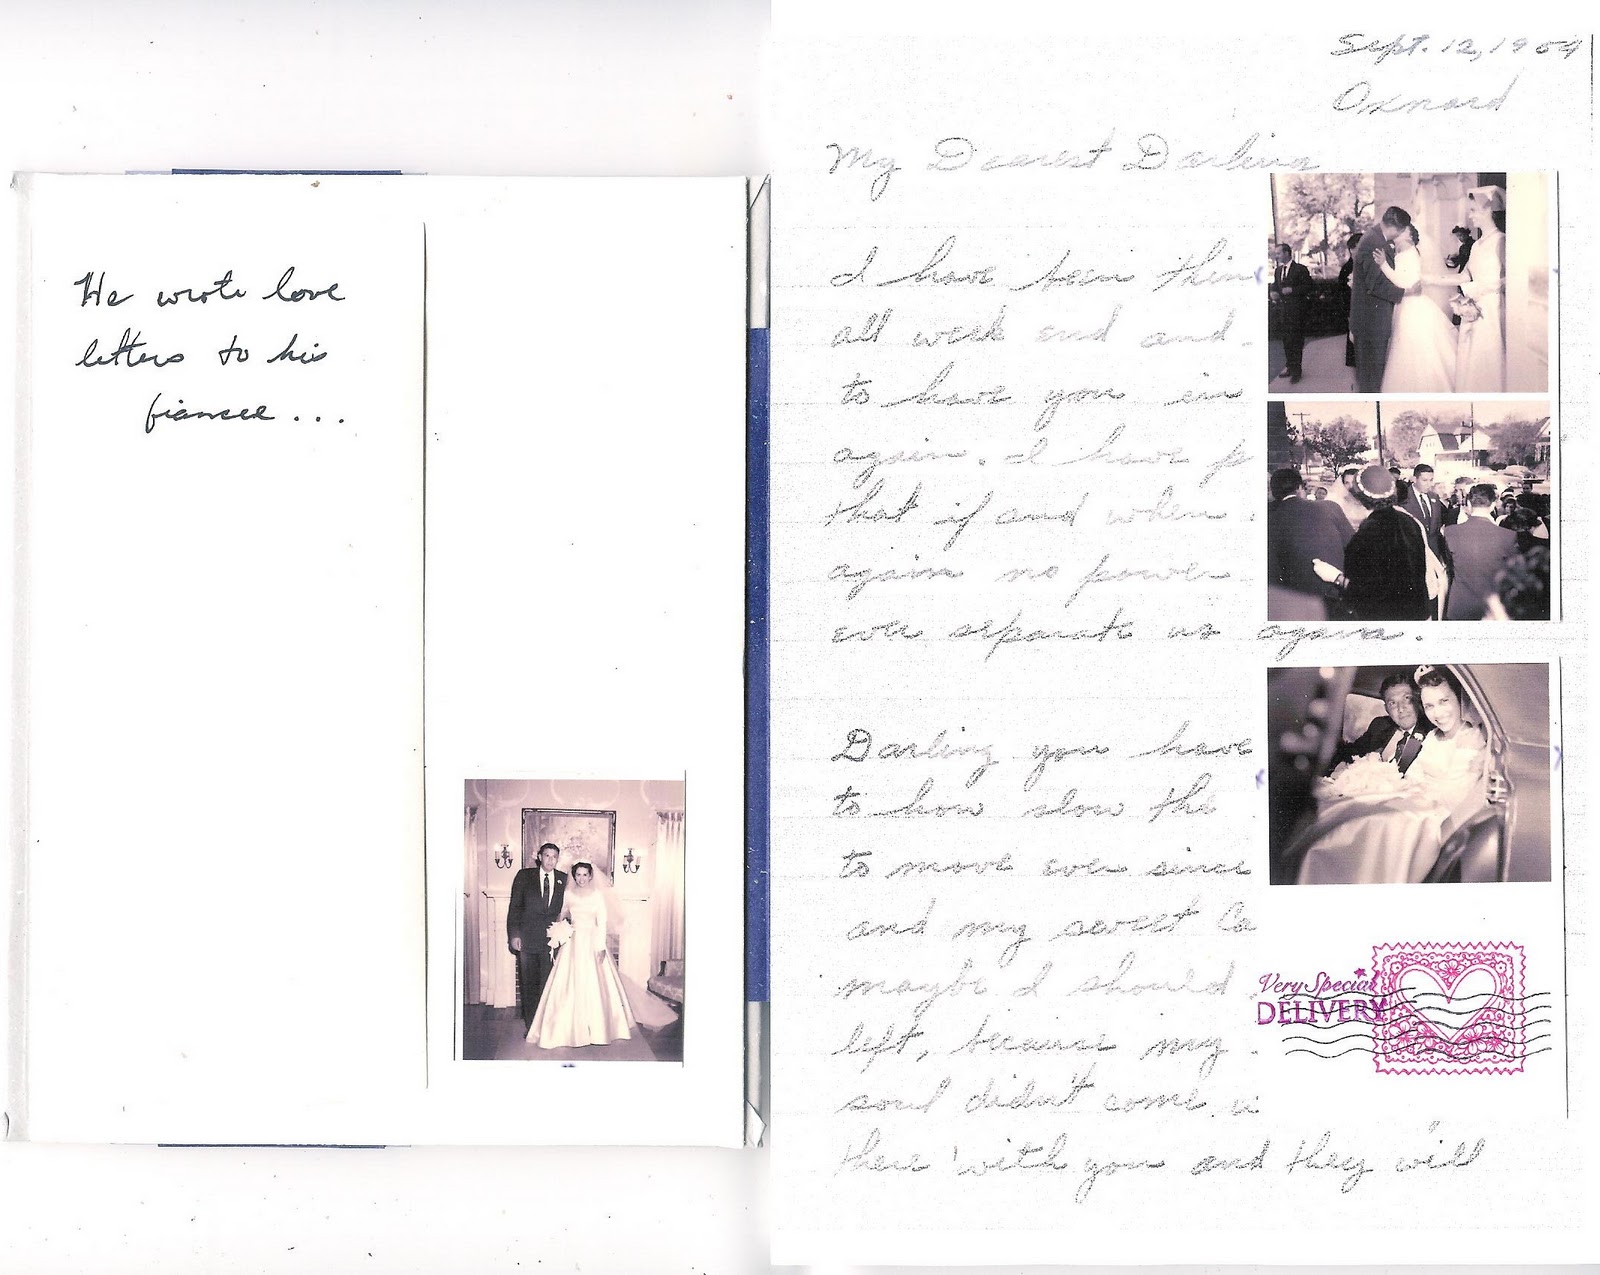 He wrote love
letters to his
fiancee...
Sept. 12, 1954
Oxnard
My Dearest Darling
I have been thin
all week end and
to have you in
again. I have p
that if and when
again no power
ever separate us again.
Darling you have
to how slow the
to move ever since
and my sweet Ca
maybe I should
left, because my
soul didn't come
there with you and they will
Very Special
DELIVERY